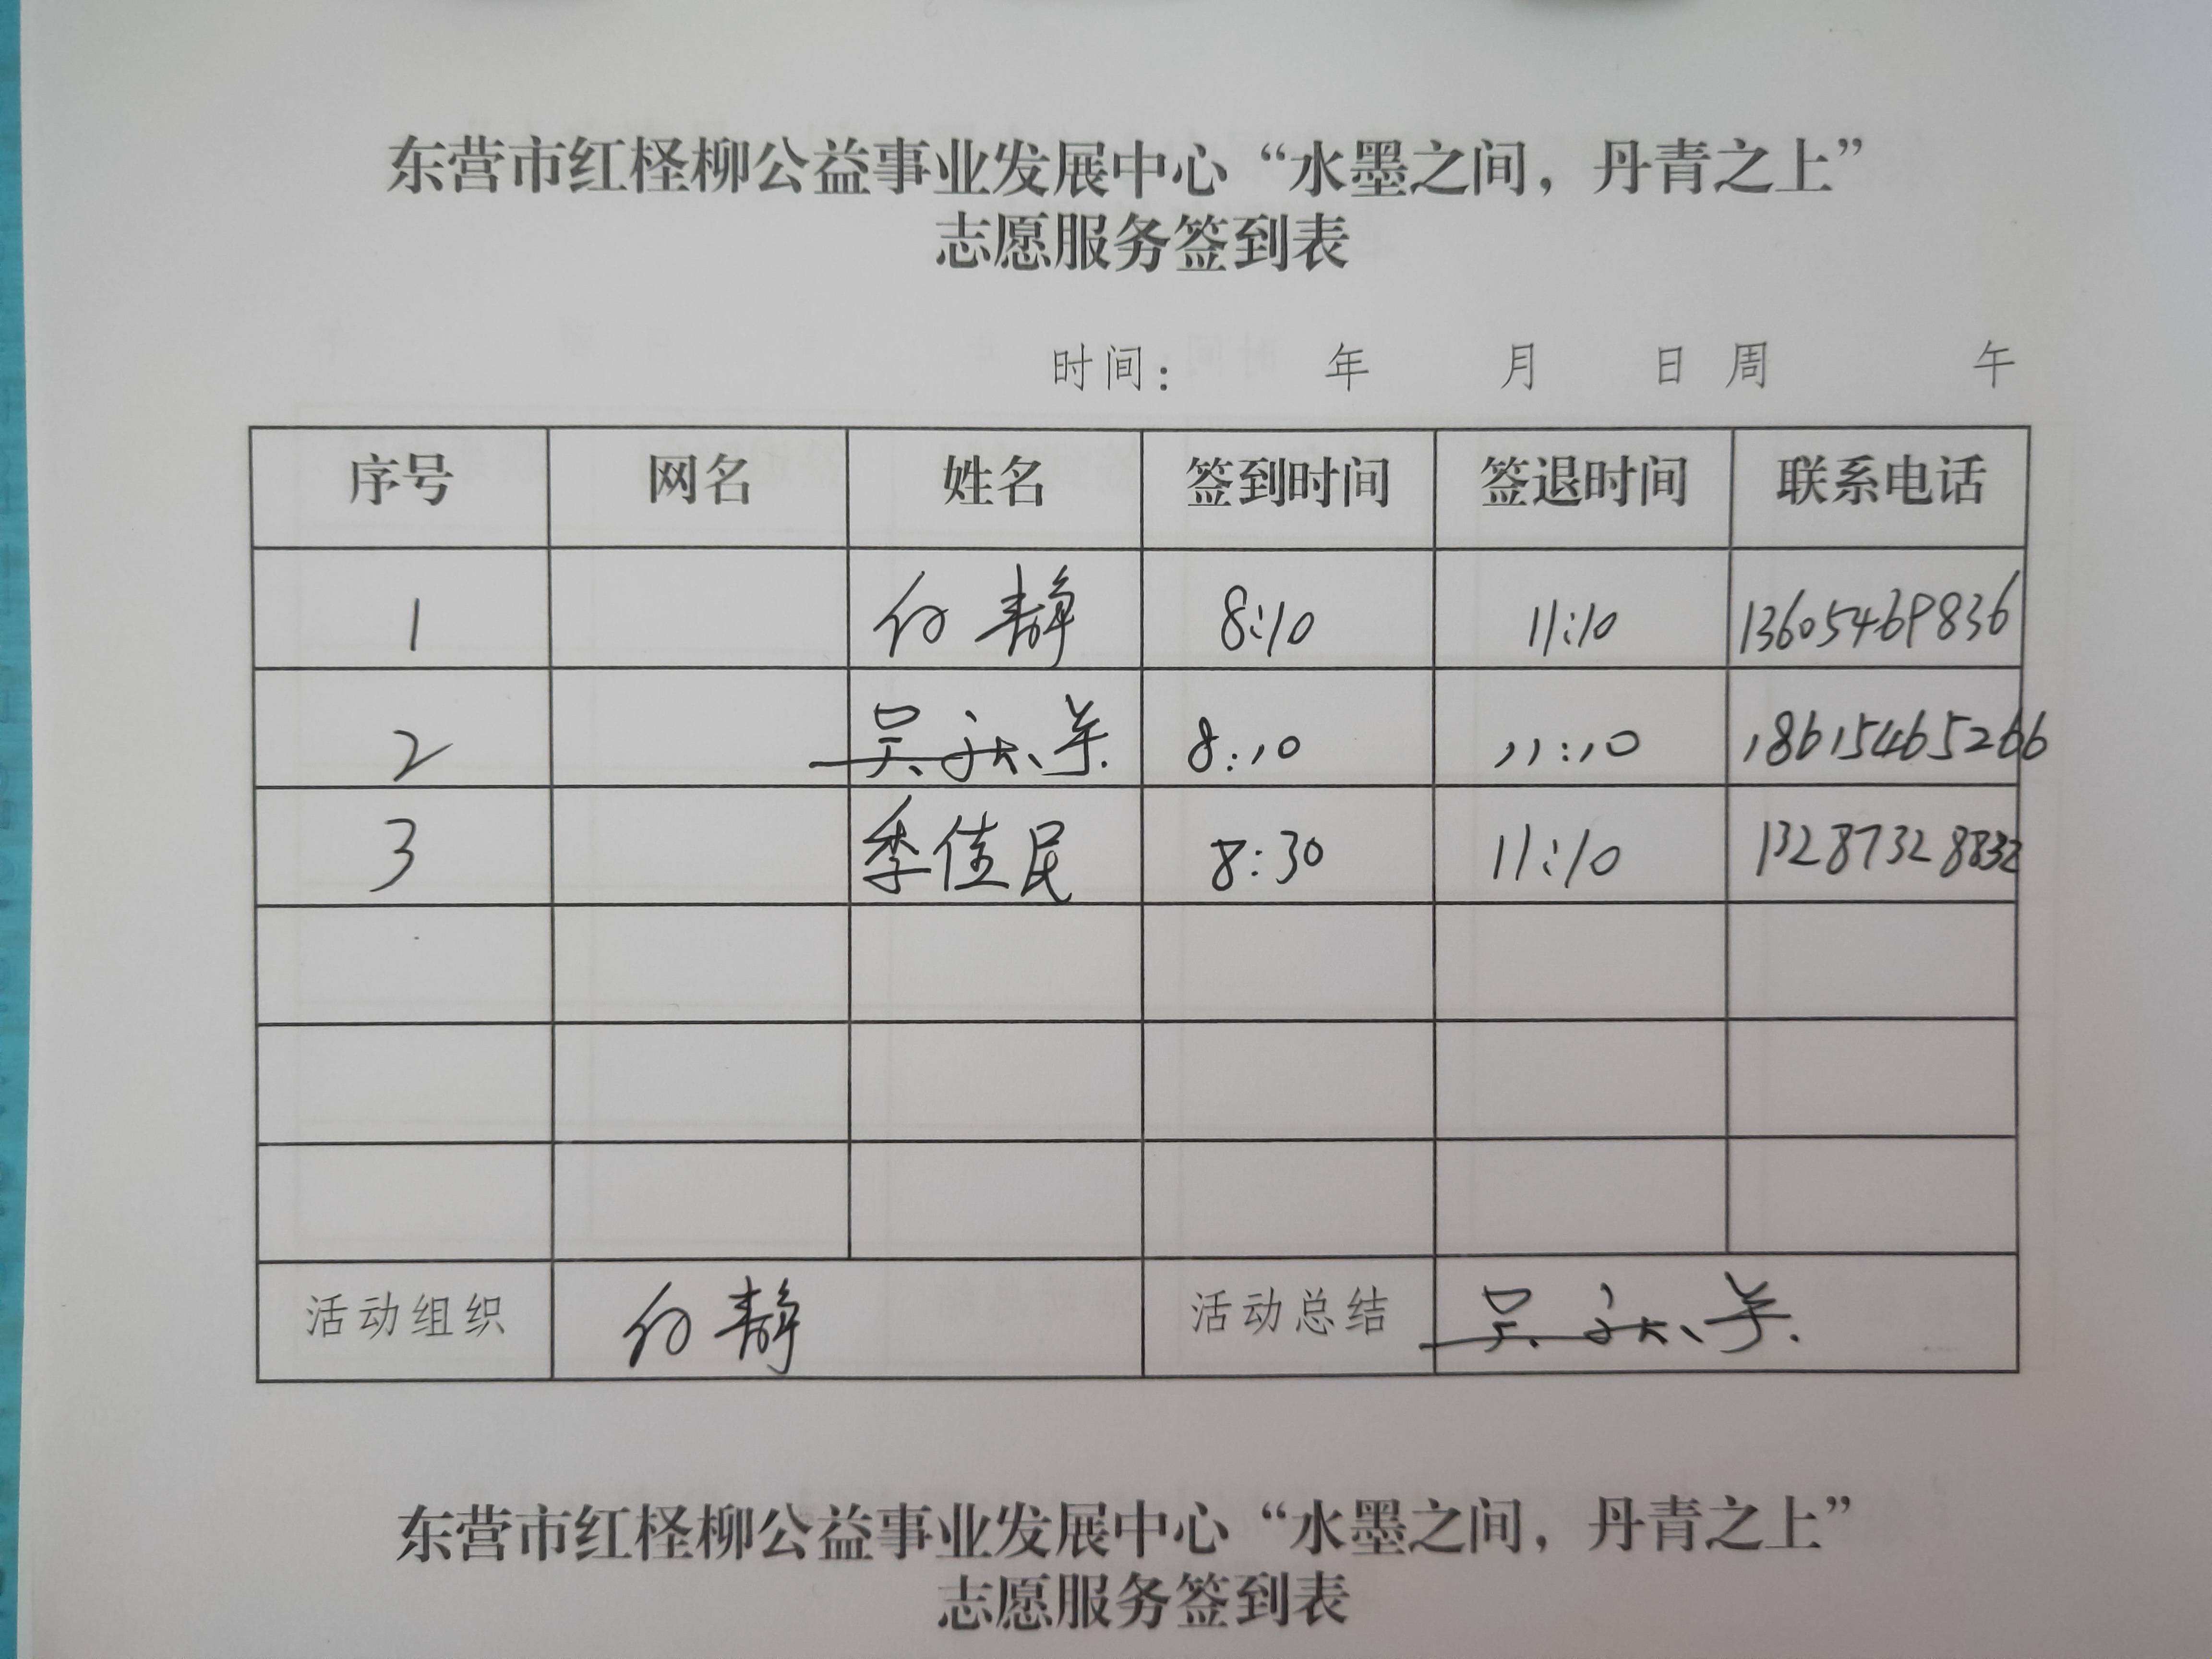 东营市红柽柳公益事业发展中心“水墨之间，丹青之上”
志愿服务签到表
时间： 年 月 日 周 午
序号 网名 姓名 签到时间 签退时间 联系电话
1 静 8:10 11:10 13605469836
2 吴 8:10 11:10 18615465266
3 季佳民 8:30 11:10 13287328832
活动组织 静 活动总结 吴
东营市红柽柳公益事业发展中心“水墨之间，丹青之上”
志愿服务签到表